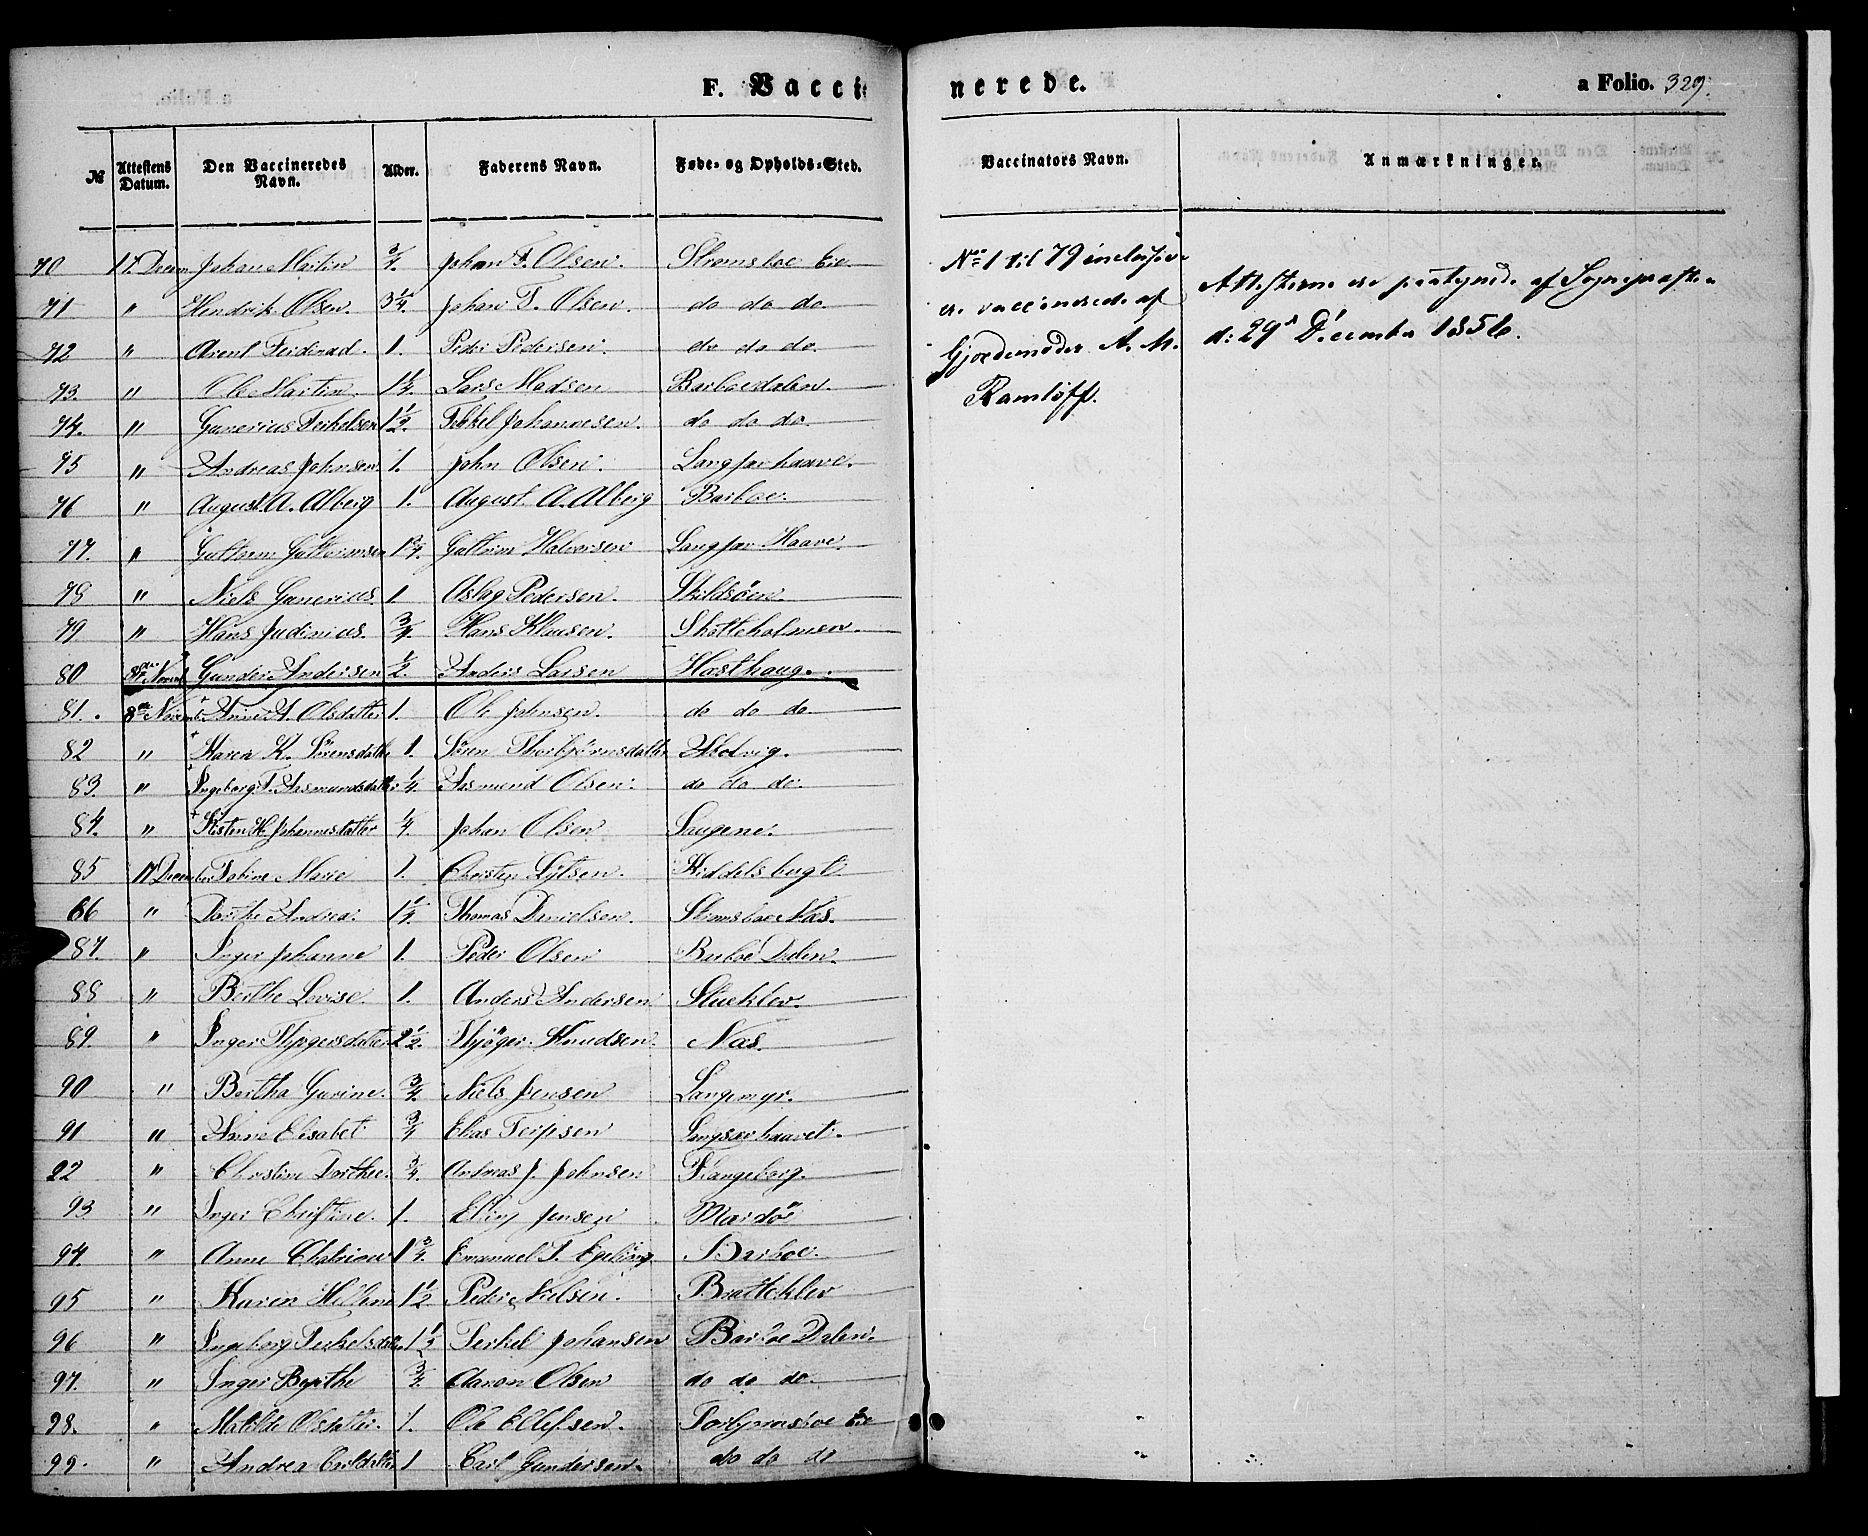 F. Vacci
nerede.
a Folio. 329.
№ Attestens Datum. Den Vaccineredes Navn. Alder. Faderens Navn. Føde- og Opholds-Sted. Vaccinators Navn. Anmærkninger.
70 17. Decem Johan Martin 3/4. Johan T. Olsen. Strømsboe Eie
71 " Hendrik Olsen. 3 1/4. Johan T. Olsen. do do do
72 " Arent Ferdinad. 1. Peder Pedersen. do do do
73. " Ole Martin 1 1/4. Lars Madsen Barboedalen.
74. " Gunerius Terkelsen 1 1/2. Terkel Johannesen. do do do
75 " Andreas Johnsen 1. John Olsen. Langsæhaave.
76 " August A. Alberg 1. August. A. Alberg Barboe.
77. " Guttorm Guttormsen 1 3/4. Guttorm Halvorsen Langsæ Haave.
78 " Niels Gunerius. 1 Oslag Pedersen. Skilsöen
79 " Hans Judinius. 3/4. Hans Klausen. Skotteholmen.
80 8de Novemb Gunder Andersen 1/2. Anders Larsen Hasthaug.
81. 8de Novemb + Anne A. Olsdatter 1. Ole Johnsen. do do do
82 " + Karen K. Sörensdatter 1. Sören Thorbjörnsdatter
83. " + Ingeborg T. Aasmundsdatter 1/4. Aasmund Olsen. do do do.
84. " + Kisten H. Johannesdatter 1/4. Johan Olsen Laugene.
85 17 December Tobine Marie 1. Christen
86 " Dorthe Andrea. 1 1/4. Thomas Danielsen. Strømsboe Næs.
87. " Inger Johanne 1. Peder Olsen Barboe Dalen.
88 " Berthe Lovise. 1. Anders Andersen Stueklev.
89. " Inger 2 1/2. Knudsen. Næs.
90 " Bertha Gurine. 3/4. Niels Jensen Langemyr.
91 " Anne Elisabet 3/4 Elias Terjesen Langsæehaavet.
92 " Christine Dorthee. 3/4. Andreas J. Johnsen Frangeborg.
93 " Inger Christine. 1. Jensen Mærdö
94. " Anne 1 3/4. Emanuel Barboe.
95 " Karen Hellene 1 1/2 Peder Nielsen. Bratteklev
96 " Ingeborg Terkelsdatter 1 1/2 Terkel Johansen Barboe Dalen.
97. " Inger Berthe Aaron Olsen do do do.
98. " Matilde Olsdatter. 1. Ole Ellefsen. Torbjørnsboe Eie
99. " Andrea Carlsdatter 1 Carl Gundersen. do do do
No 1 til 79 inclusive
er vaccinerede af
Gjordemoder A. M.
Ramlöff.
Attesterne ere paategnede af Sognepræsten
d: 29d December 1856.